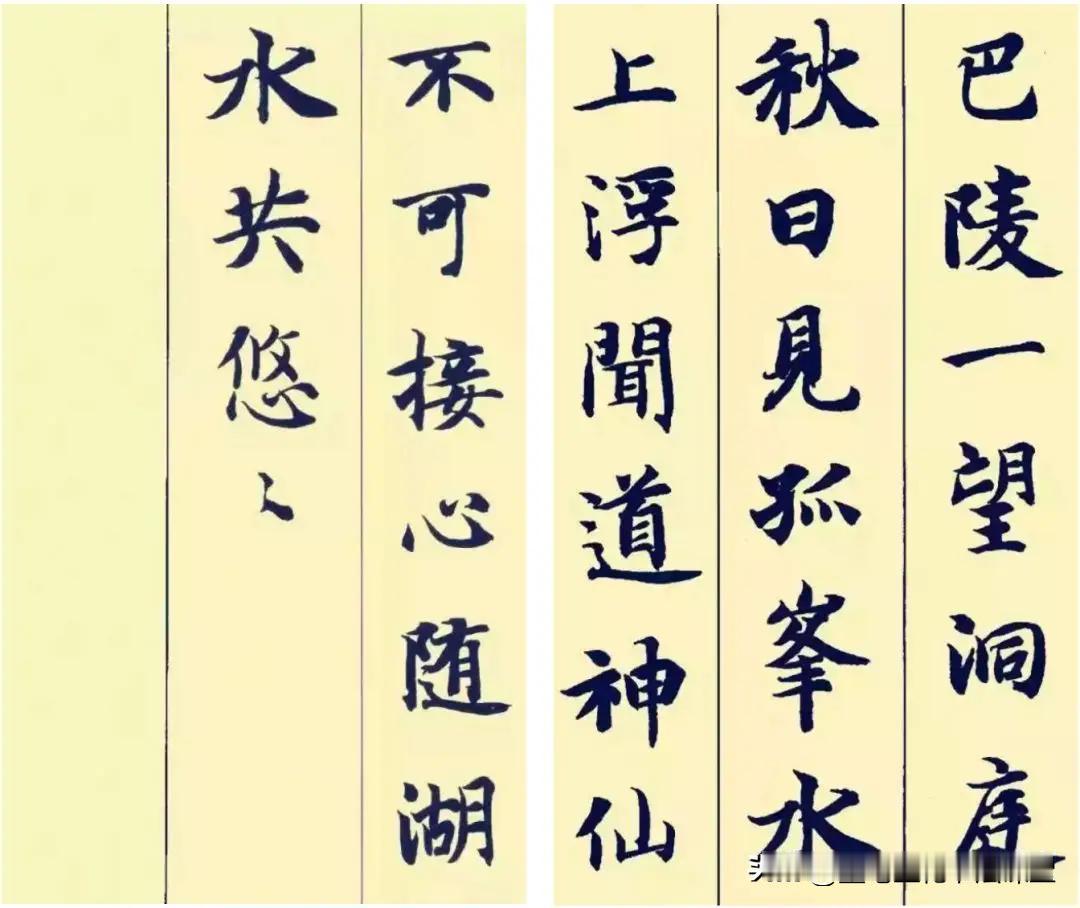 巴陵一望洞庭
秋日見孤峯水
上浮聞道神仙
不可接心随湖
水共悠〻